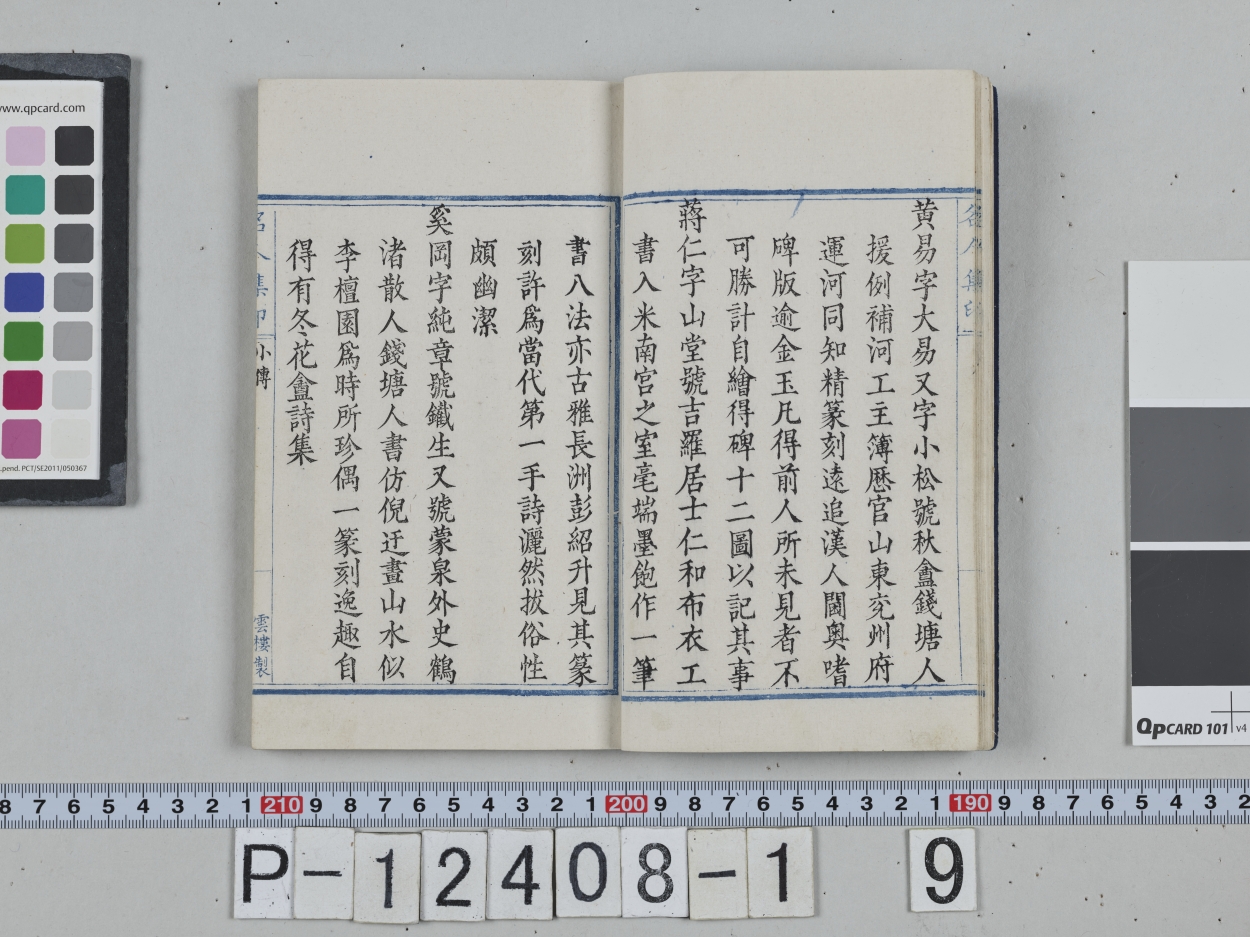 黄易字大易又字小松號秋盦錢塘人
援例補河工主簿歷官山東兗州府
運河同知精篆刻遠追漢人閫奥嗜
碑版逾金玉凡得前人所未見者不
可勝計自繪得碑十二圖以記其事
蔣仁字山堂號吉羅居士仁和布衣工
書入米南宫之室毫端墨飽作一筆
書八法亦古雅長洲彭紹升見其篆
刻許爲當代第一手詩灑然拔俗性
頗幽潔
奚岡字純章號鐵生又號蒙泉外史鶴
渚散人錢塘人書仿倪迂畫山水似
李檀園爲時所珍偶一篆刻逸趣自
得有冬花盦詩集
小傳
雲樓製
www.qpcard.com
.pend. PCT/SE2011/050367
QPCARD 101 v4
8 7 6 5 4 3 2 1 210 9 8 7 6 5 4 3 2 1 200 9 8 7 6 5 4 3 2 1 190 9 8 7 6 5 4 3 2
P-12408-1 9